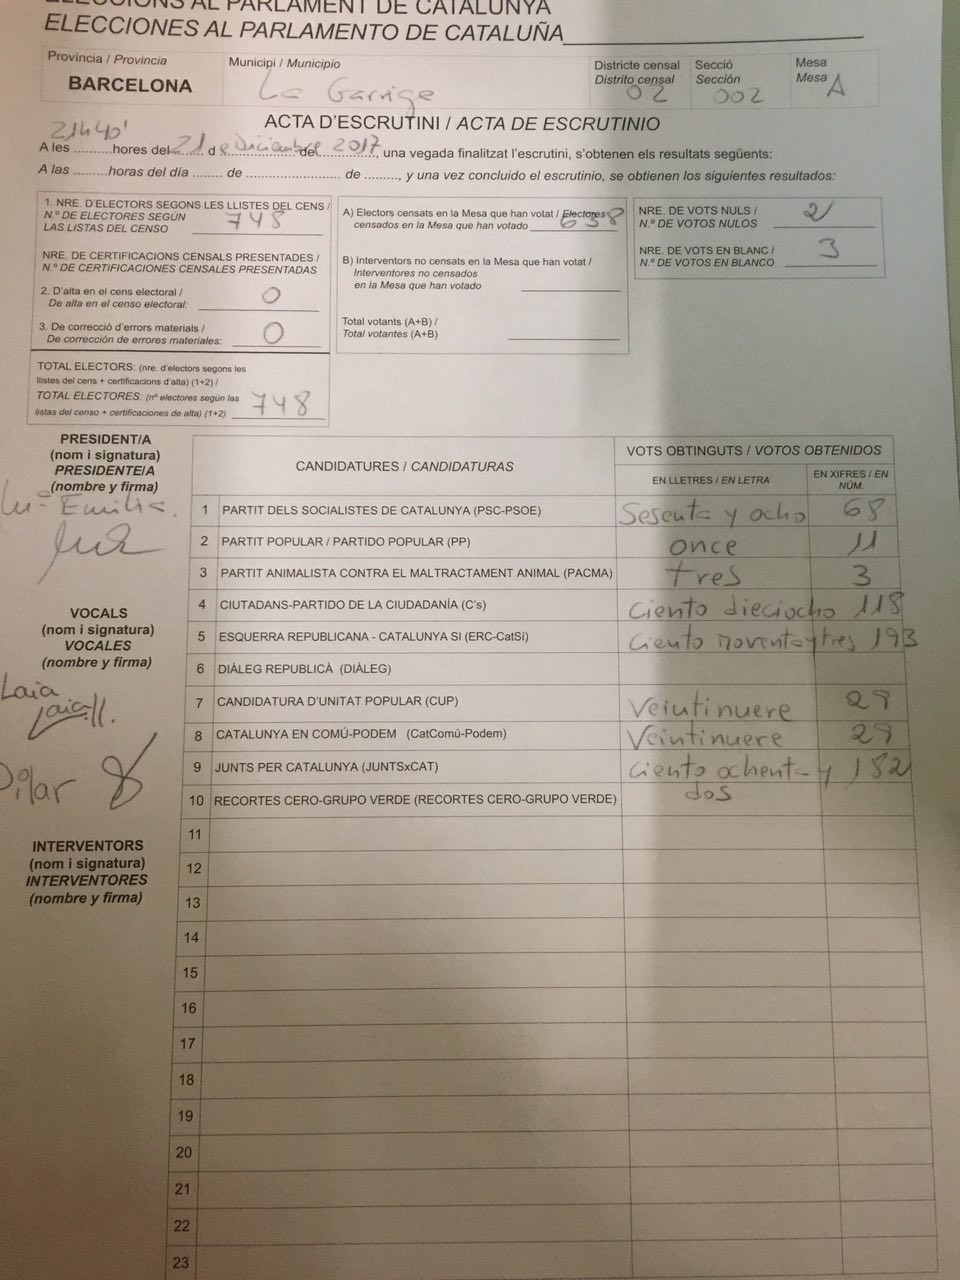 ELECCIONS AL PARLAMENT DE CATALUNYA
ELECCIONES AL PARLAMENTO DE CATALUÑA
Província / Provincia
BARCELONA
Municipi / Municipio
La Garriga
Districte censal
Distrito censal
02
Secció
Sección
002
Mesa
Mesa
A
ACTA D'ESCRUTINI / ACTA DE ESCRUTINIO
21h40'
A les .........hores del 21 de Diciembre del 2017, una vegada finalitzat l'escrutini, s'obtenen els resultats següents:
A las .........horas del día ........ de ...................... de ........., y una vez concluido el escrutinio, se obtienen los siguientes resultados:
1. NRE. D'ELECTORS SEGONS LES LLISTES DEL CENS /
N.º DE ELECTORES SEGÚN
LAS LISTAS DEL CENSO
748
NRE. DE CERTIFICACIONS CENSALS PRESENTADES /
N.º DE CERTIFICACIONES CENSALES PRESENTADAS
2. D'alta en el cens electoral /
De alta en el censo electoral:
0
3. De correcció d'errors materials /
De corrección de errores materiales:
0
TOTAL ELECTORS: (nre. d'electors segons les
llistes del cens + certificacions d'alta) (1+2) /
TOTAL ELECTORES: (nº electores según las
listas del censo + certificaciones de alta) (1+2)
748
A) Electors censats en la Mesa que han votat / Electores
censados en la Mesa que han votado
638
B) Interventors no censats en la Mesa que han votat /
Interventores no censados
en la Mesa que han votado
Total votants (A+B) /
Total votantes (A+B)
NRE. DE VOTS NULS /
N.º DE VOTOS NULOS
2
NRE. DE VOTS EN BLANC /
N.º DE VOTOS EN BLANCO
3
PRESIDENT/A
(nom i signatura)
PRESIDENTE/A
(nombre y firma)
Mª Emilia.
VOCALS
(nom i signatura)
VOCALES
(nombre y firma)
Laia
Pilar
INTERVENTORS
(nom i signatura)
INTERVENTORES
(nombre y firma)
CANDIDATURES / CANDIDATURAS
VOTS OBTINGUTS / VOTOS OBTENIDOS
EN LLETRES / EN LETRA
EN XIFRES / EN
NÚM.
1 PARTIT DELS SOCIALISTES DE CATALUNYA (PSC-PSOE) Sesenta y ocho 68
2 PARTIT POPULAR / PARTIDO POPULAR (PP) once 11
3 PARTIT ANIMALISTA CONTRA EL MALTRACTAMENT ANIMAL (PACMA) tres 3
4 CIUTADANS-PARTIDO DE LA CIUDADANÍA (C's) Ciento dieciocho 118
5 ESQUERRA REPUBLICANA - CATALUNYA SI (ERC-CatSí) Ciento noventa y tres 193
6 DIÀLEG REPUBLICÀ (DIÀLEG)
7 CANDIDATURA D'UNITAT POPULAR (CUP) Veintinueve 29
8 CATALUNYA EN COMÚ-PODEM (CatComú-Podem) Veintinueve 29
9 JUNTS PER CATALUNYA (JUNTSxCAT) Ciento ochenta y 182
dos
10 RECORTES CERO-GRUPO VERDE (RECORTES CERO-GRUPO VERDE)
11
12
13
14
15
16
17
18
19
20
21
22
23